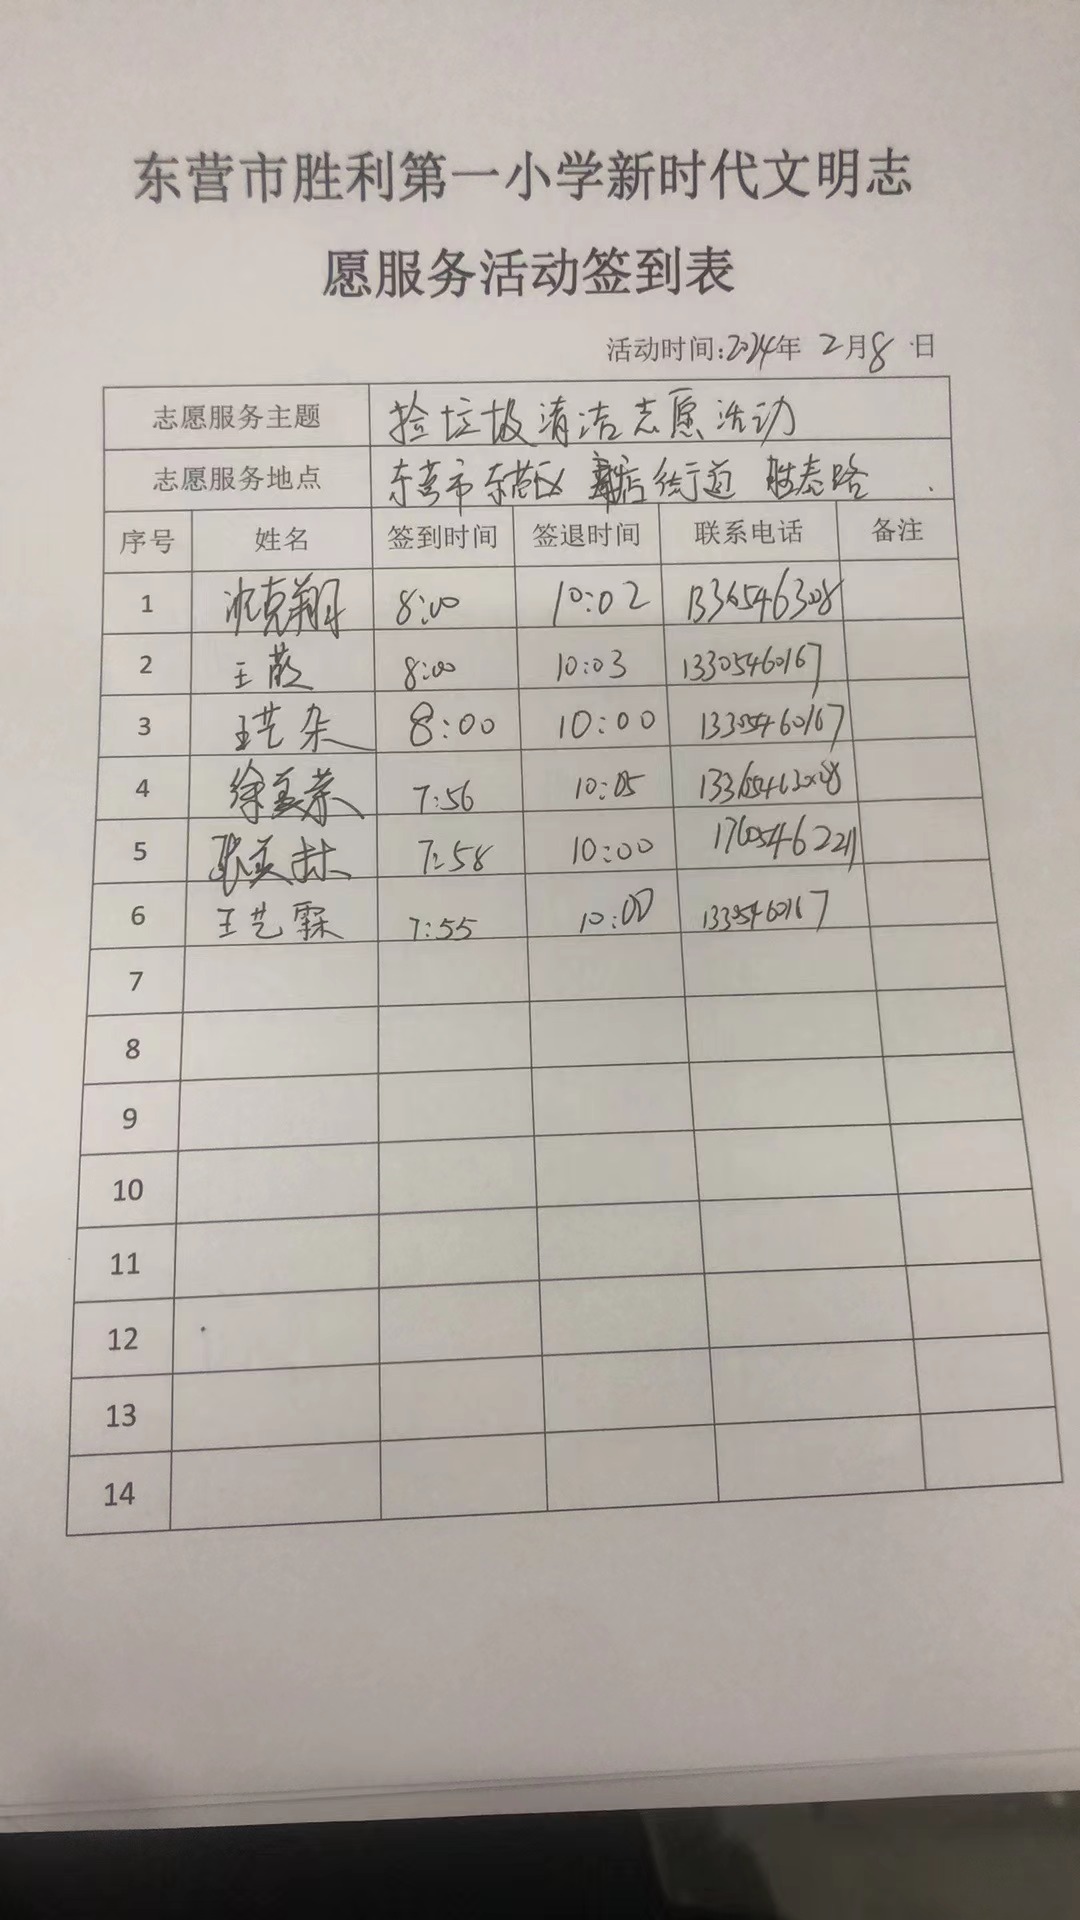 东营市胜利第一小学新时代文明志
愿服务活动签到表
活动时间:2024年 2月8 日
志愿服务主题 捡垃圾清洁志愿活动
志愿服务地点 东营市东营区 街道 胜泰路
序号 姓名 签到时间 签退时间 联系电话 备注
1 克翔 8:00 10:02 1336546308
2 王 8:00 10:03 13305460167
3 王艺朵 8:00 10:00 13305460167
4 徐美荣 7:56 10:05
5 张美林 7:58 10:00 17605462211
6 王艺霖 7:55 10:00 13305460167
7
8
9
10
11
12
13
14